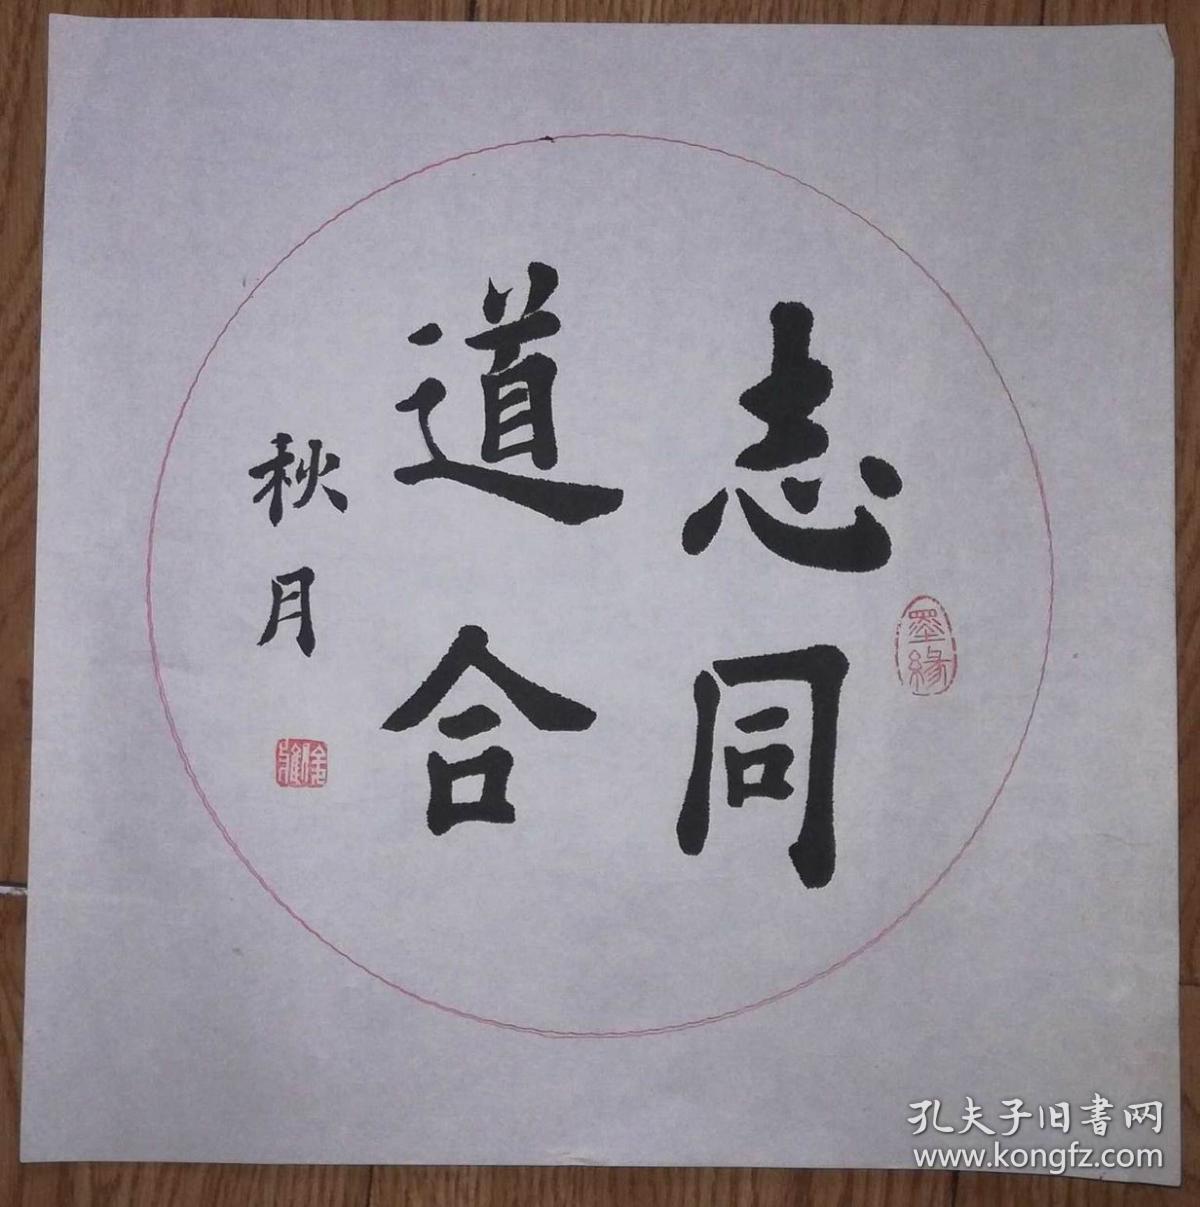 志同
道合
秋月
墨缘
孔夫子旧書网
www.kongfz.com